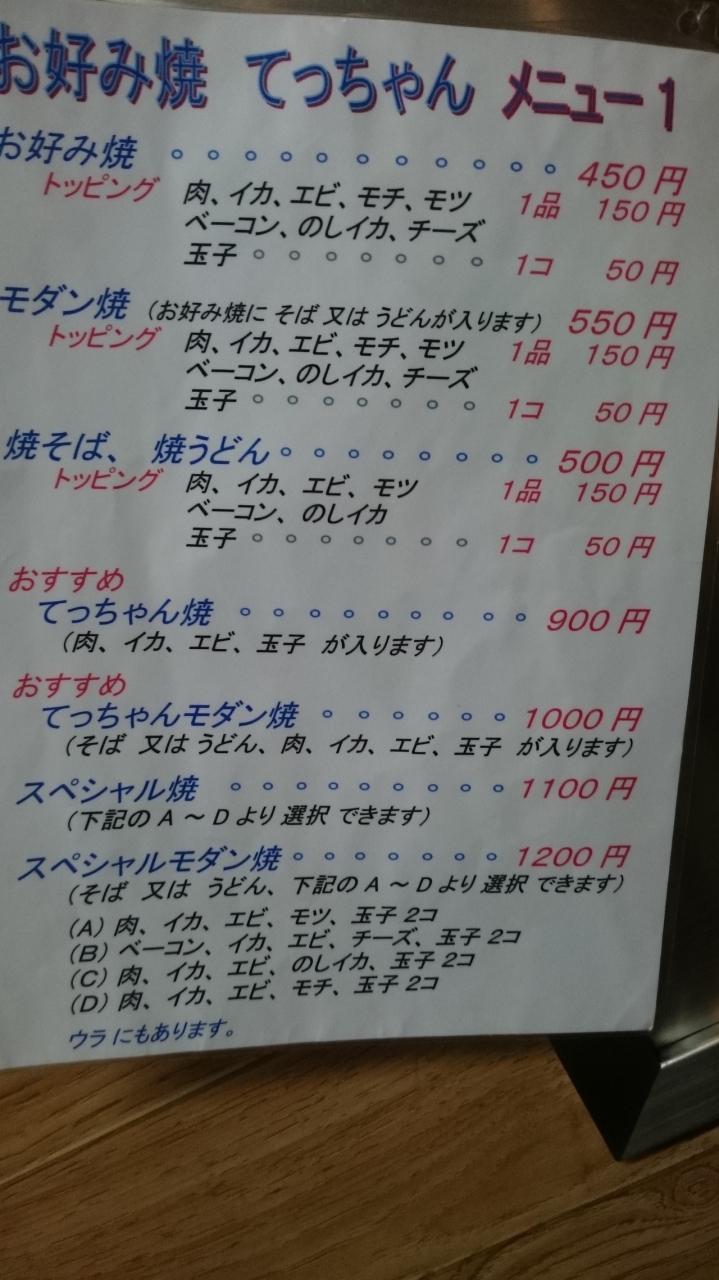 お好み焼 てっちゃん メニュー1
お好み焼 。。。。。。。。。。。 450円
トッピング 肉、イカ、エビ、モチ、モツ 1品 150円
ベーコン、のしイカ、チーズ
玉子。。。。。。。 1コ 50円
モダン焼 (お好み焼に そば 又は うどんが入ります) 550円
トッピング 肉、イカ、エビ、モチ、モツ 1品 150円
ベーコン、のしイカ、チーズ
玉子。。。。。。。 1コ 50円
焼そば、 焼うどん。。。。。。。。 500円
トッピング 肉、イカ、エビ、モツ 1品 150円
ベーコン、のしイカ
玉子。。。。。。。 1コ 50円
おすすめ
てっちゃん焼 。。。。。。。。。 900円
(肉、イカ、エビ、玉子 が入ります)
おすすめ
てっちゃんモダン焼 。。。。。。 1000円
(そば 又は うどん、肉、イカ、エビ、玉子 が入ります)
スペシャル焼 。。。。。。。。。 1100円
(下記の A ~ D より 選択 できます)
スペシャルモダン焼。。。。。。。 1200円
(そば 又は うどん、下記の A ~ D より 選択 できます)
(A) 肉、イカ、エビ、モツ、玉子 2コ
(B) ベーコン、イカ、エビ、チーズ、玉子 2コ
(C) 肉、イカ、エビ、のしイカ、玉子 2コ
(D) 肉、イカ、エビ、モチ、玉子 2コ
ウラ にもあります。